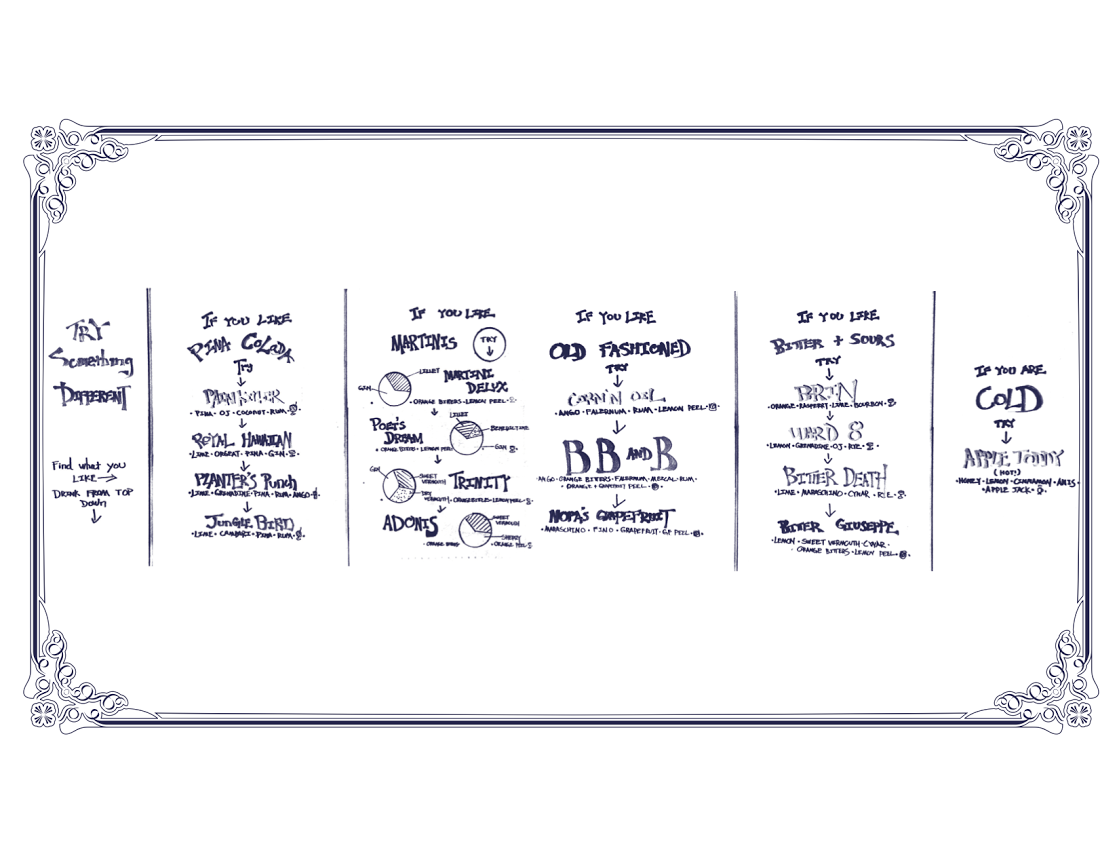 TRY
Something
DIFFERENT
Find what you
LIKE
DRINK FROM TOP
Down
IF YOU LIKE
PINA COLADA
Try
PAIN KILLER
· PINA · OJ · COCONUT · RUM ·
ROYAL HAWAIIAN
· LIME · ORGEAT · PINA · GIN ·
PLANTER'S Punch
· LIME · GRENADINE · PINA · RUM · ANGO ·
JUNGLE BIRD
· LIME · CAMPARI · PINA · RUM ·
IF YOU LIKE
MARTINIS
TRY
LILLET
GIN
MARTINI
DELUX
· ORANGE BITTERS · LEMON PEEL ·
LILLET
POET'S
DREAM
BENEDICTINE
GIN
· ORANGE BITTERS · LEMON PEEL
GIN
SWEET
VERMOUTH
DRY
VERMOUTH
TRINITY
· ORANGE BITTERS · LEMON PEEL ·
ADONIS
SWEET
VERMOUTH
SHERRY
· ORANGE BITTERS
· ORANGE PEEL ·
IF YOU LIKE
OLD FASHIONED
TRY
CORN'N OIL
· ANGO · FALERNUM · RUM · LEMON PEEL ·
BB AND B
· ANGO · ORANGE BITTERS · FALERNUM · MEZCAL · RUM ·
· ORANGE + GRAPEFRUIT PEEL ·
NOPA'S GRAPEFRUIT
· MARASCHINO · FINO · GRAPEFRUIT · GF PEEL ·
IF YOU LIKE
BITTER + SOURS
TRY
· ORANGE · RASPBERRY · LIME · BOURBON ·
WARD 8
· LEMON · GRENADINE · OJ · RYE ·
BITTER DEATH
· LIME · MARASCHINO · CYNAR · RYE ·
BITTER GIUSEPPE
· LEMON · SWEET VERMOUTH · CYNAR ·
· ORANGE BITTERS · LEMON PEEL ·
IF YOU ARE
COLD
TRY
APPLE TODDY
(HOT!)
· HONEY · LEMON · CINNAMON · ANIS ·
· APPLE JACK ·